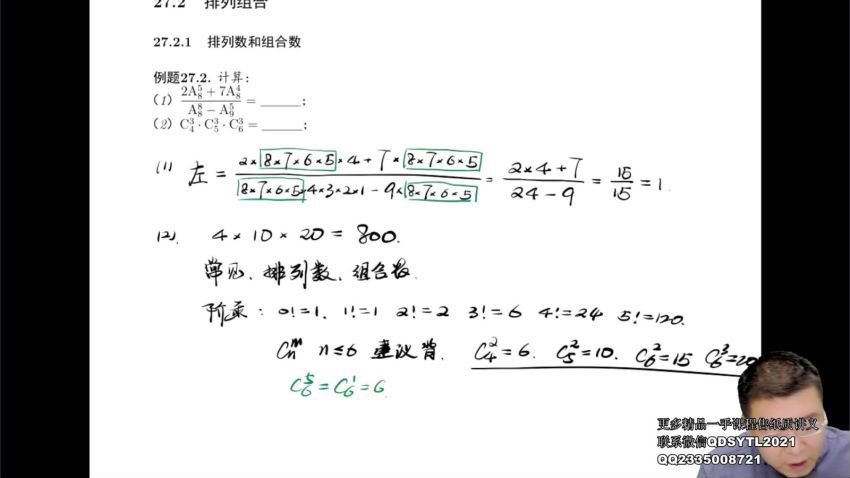 27.2 排列组合
27.2.1 排列数和组合数
例题27.2. 计算:
(1) \frac{2A_8^5 + 7A_8^4}{A_8^8 - A_9^5} = ______;
(2) C_4^3 · C_5^3 · C_6^3 = ______;
(1) 左 = \frac{2×8×7×6×5×4+7×8×7×6×5}{8×7×6×5×4×3×2×1-9×8×7×6×5} = \frac{2×4+7}{24-9} = \frac{15}{15} = 1.
(2). 4 × 10 × 20 = 800.
常见、排列数、组合数.
阶乘: 0!=1. 1!=1 2!=2 3!=6 4!=24 5!=120.
C_n^m n≤6 建议背. C_4^2=6. C_5^2=10. C_6^2=15 C_6^3=20
C_6^5=C_6^1=6.
更多精品一手课程售纸质讲义
联系微信QDSYTL2021
QQ2335008721